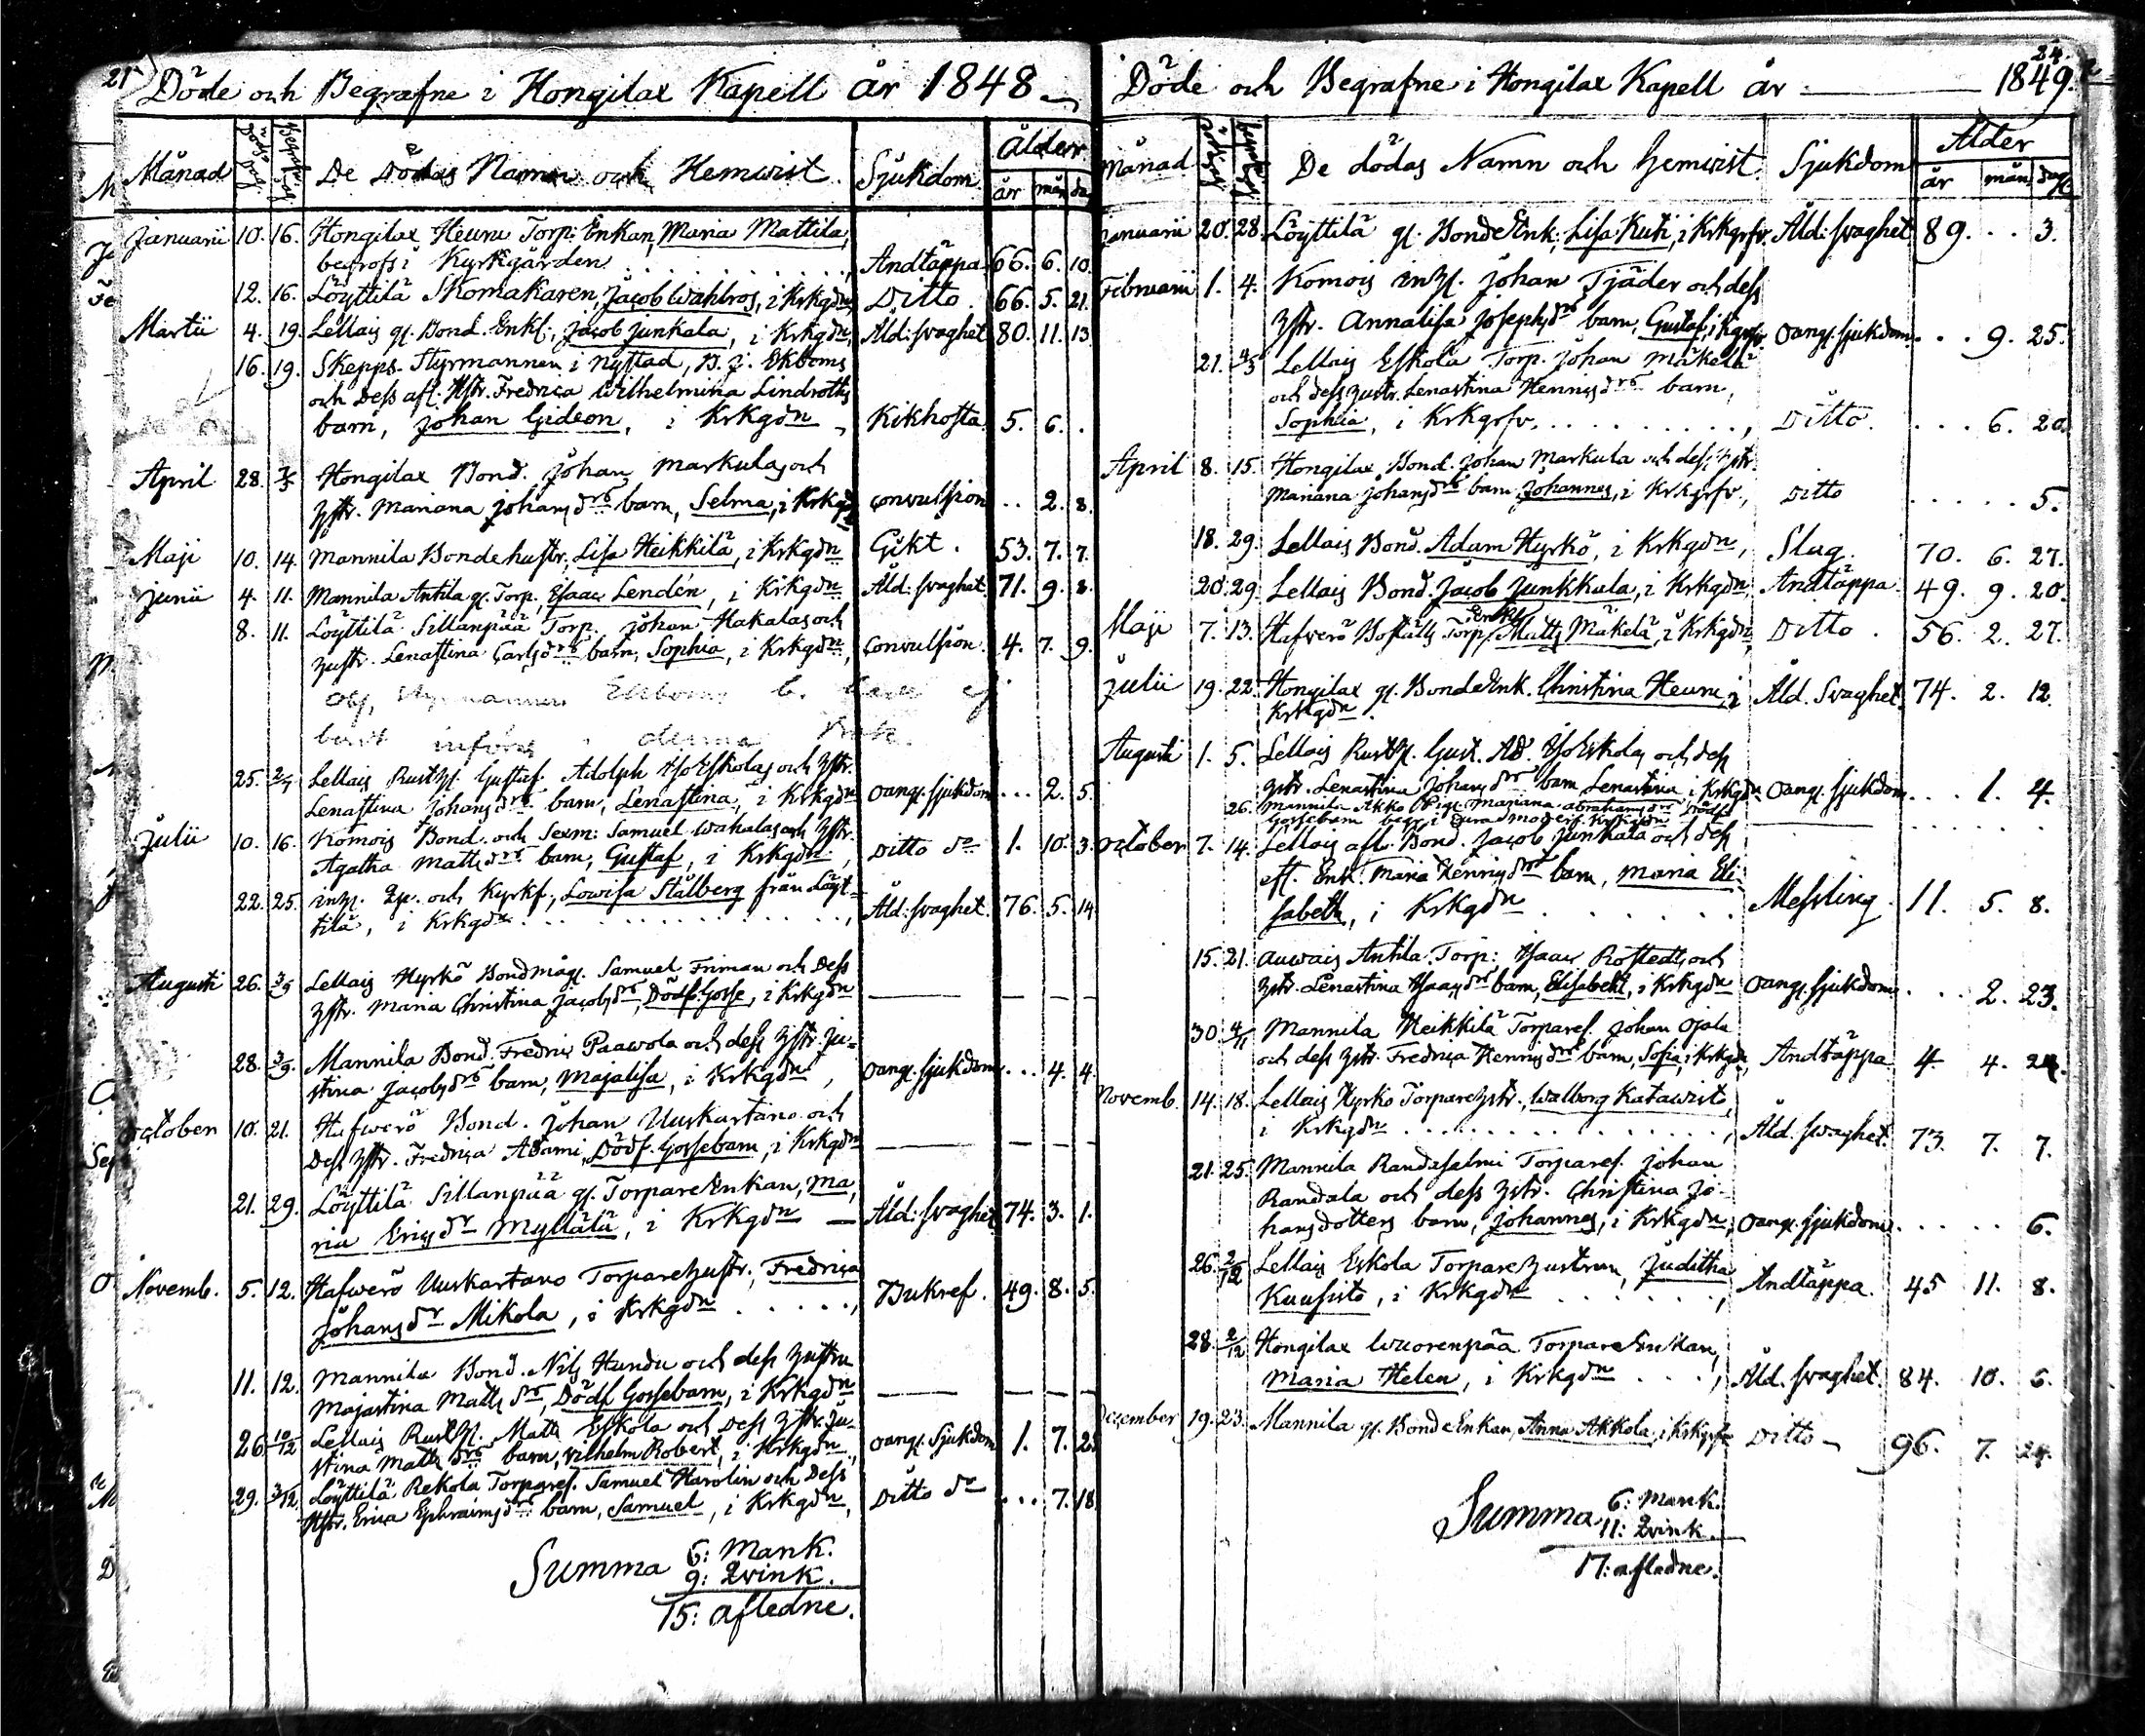 21
Döde och Begrafne i Hongilax Kapell år 1848
Månad
Döds dag
Begrafn. dag
De Dödas Namn och Hemwist.
Sjukdom
Ålder
år mån da
Januarii 10. 16. Hongilax Heunu Torp: Enkan, Maria Mattila,
begrofs i Kyrkgården Andtäppa 66. 6. 10
12. 16. Löyttilä Skomakaren, Jacob Wahlros, i Krkgdn Ditto. 66. 5. 21.
Martii 4. 19. Lellais gl. Bond. Enkl; Jacob Junkala, i Krkgdn, Åld: svaghet 80. 11. 13.
16. 19. Skepps-Styrmannen i Nystad, B. J. Ekboms
och Dess afl. Hstr. Fredrica Wilhelmina Lindroths
barn, Johan Gideon, i Krkgdn Kikhosta 5. 6. .
April 28. 7/5 Hongilax Bond. Johan Markulas och
Hstr. Mariana Johansdrs barn, Selma, i Krkgdn convulsion .. 2. 8.
Maji 10. 14. Mannila Bondehustr. Lisa Heikkilä, i Krkgdn Gikt. 53. 7. 7.
Junii 4. 11. Mannila Antila gl. Torp. Esaac Lendén, i Krkgdn. Åld: svaghet 71. 9. 8.
8. 11. Löyttilä Sillanpää Torp. Johan Hakalas och
Hustr. Lenastina Carlsdrs barn, Sophia, i Krkgdn, Convulsion 4. 7. 9.
införes denna
25. 2/7 Lellais Rusth. Gustaf Adolph IsoEskolas och Hstr.
Lenastina Johansdrs barn, Lenastina, i Krkgdn oang. sjukdom ... 2. 5.
Julii 10. 16. Komois Bond. och Sexm: Samuel Wahalas och Hstr.
Agatha Mattsdrs barn, Gustaf, i Krkgdn, Ditto do 1. 10. 3.
22. 25. inh. Hp. och Kyrkf., Lowisa Stålberg från Löyt-
tilä, i Krkgdn Åld: svaghet. 76. 5. 14
Augusti 26. 3/9 Lellais Hyrkö Bondmåg. Samuel Friman och Dess
Hstr. Maria Christina Jacobsdrs, Dödf: Gosse, i Krkgdn
28. 3/9. Mannila Bond. Fredric Paawola och dess Hstr. Ju-
stina Jacobsdrs barn, Majalisa, i Krkgdn, oang. sjukdom ... 4. 4.
October 10. 21. Hafwerö Bond. Johan Uuskartano och
Dess Hstr. Fredrica Adami, Dödf. Gossebarn, i Krkgdn
21. 29. Löyttilä Sillanpää gl. TorpareEnkan, Ma,
ria Ericsdr Myllälä, i Krkgdn Åld: svaghet 74. 3. 1.
Novemb. 5. 12. Hafwerö Uuskartano Torparehustr., Fredrica
Johansdr Mikola, i Krkgdn Bukref. 49. 8. 5.
11. 12. Mannila Bond. Nils Hundu och dess Hustru
Majastina Mattsdrs, Dödf Gossebarn, i Krkgdn
26. 10/12 Lellais Rusth. Matts Eskola och Dess Hstr. Ju-
stina Mattsdrs barn, Vilhelm Robert, i Krkgdn, oang. Sjukdom 1. 7. 25
29. 3/12. Löyttilä Rekola Torparef. Samuel Harolin och Dess
Hstr. Erica Ephraimsdrs barn, Samuel, i Krkgdn, Ditto do ... 7. 18
Summa 6: Mank.
9: Qvink.
15: afledne.
24.
Döde och Begrafne i Hongilax Kapell år 1849.
Månad
dödsdag
begrafdag
De dödas Namn och hemvist
Sjukdom
Ålder
år mån dag
Januarii 20. 28. Löyttilä gl. BondeEnk: Lisa Kuti, i Krkgrfv Åld: svaghet 89. .. 3.
Februarii 1. 4. Komois inh. Johan Tjäder och dess
Hstr. Annalisa Josephsdrs barn, Gustaf, i Krkgrfv oang. sjukdom ... 9. 25.
21. 4/3 Lellais Eskola Torp. Johan Mäkelä
och dess Hustr. Lenastina Henricsdrs barn,
Sophia, i Krkgrfv. Ditto. ... 6. 20.
April 8. 15. Hongilax Bond. Johan Markula och dess Hstr.
Mariana Johansdrs barn, Johannes, i Krkgrfv., Ditto 5.
18. 29. Lellais Bond. Adam Hyrkö, i Krkgdn, Slag. 70. 6. 27.
20. 29. Lellais Bond. Jacob Junkkula, i Krkgdn, Andtäppa 49. 9. 20.
Maji 7. 13. Hafwerö Boställs Torp. Enkl. Matts Mäkelä, i Krkgdn, Ditto. 56. 2. 27.
Julii 19. 22. Hongilax gl. BondeEnk. Christina Heunu, i
Krkgdn. Åld. Svaghet 74. 2. 12.
Augusti 1. 5. Lellais Rusth. Gust. Ad. IsoEskola, och dess
Hstr. Lenastina Johansdrs barn Lenastina i Krkgdn oang. sjukdom ... 1. 4.
26. Mannila Akko Pig. Mariana Abrahamsdrs Dödf.
Gossebarn begr. i Eura moderk. Krkgdn
October 7. 14. Lellais afl. Bond. Jacob Junkala och dess
eft. Enk. Maria Henricsdrs barn, Maria Eli-
sabeth, i Krkgdn Messling. 11. 5. 8.
15. 21. Auwais Antila Torp: Isaac Rostedt, och
Hstr. Lenastina Isaacsdrs barn, Elisabeth, i Krkgdn oang. sjukdom ... 2. 23.
30 4/11 Mannila Heikkilä Torparef. Johan Ojala
och dess Hstr. Fredrica Henricsdrs barn, Sofia, i Krkgdn, Andtäppa 4. 4. 24.
Novemb. 14. 18. Lellais Hyrkö Torparehstr., Walborg Katawisto,
i Krkgdn Åld. svaghet. 73. 7. 7.
21. 25. Mannila Randasalmi Torparef. Johan
Randala och dess Hstr. Christina Jo-
hansdotters barn, Johannes, i Krkgdn, oang. sjukdom. 6.
26. 2/12 Lellais Eskola Torparehustrun, Juditha
Kuusisto, i Krkgdn Andtäppa. 45 11. 8.
28. 2/12 Hongilax Wuorenpää TorpareEnkan,
Maria Helen, i Krkgdn Åld. svaghet. 84. 10. 6.
December 19. 23. Mannila gl. BondeEnkan, Anna Akkola, i Krkgrfv Ditto 96. 7. 24.
Summa 6: Mank.
11: Qvink.
17: afledne.